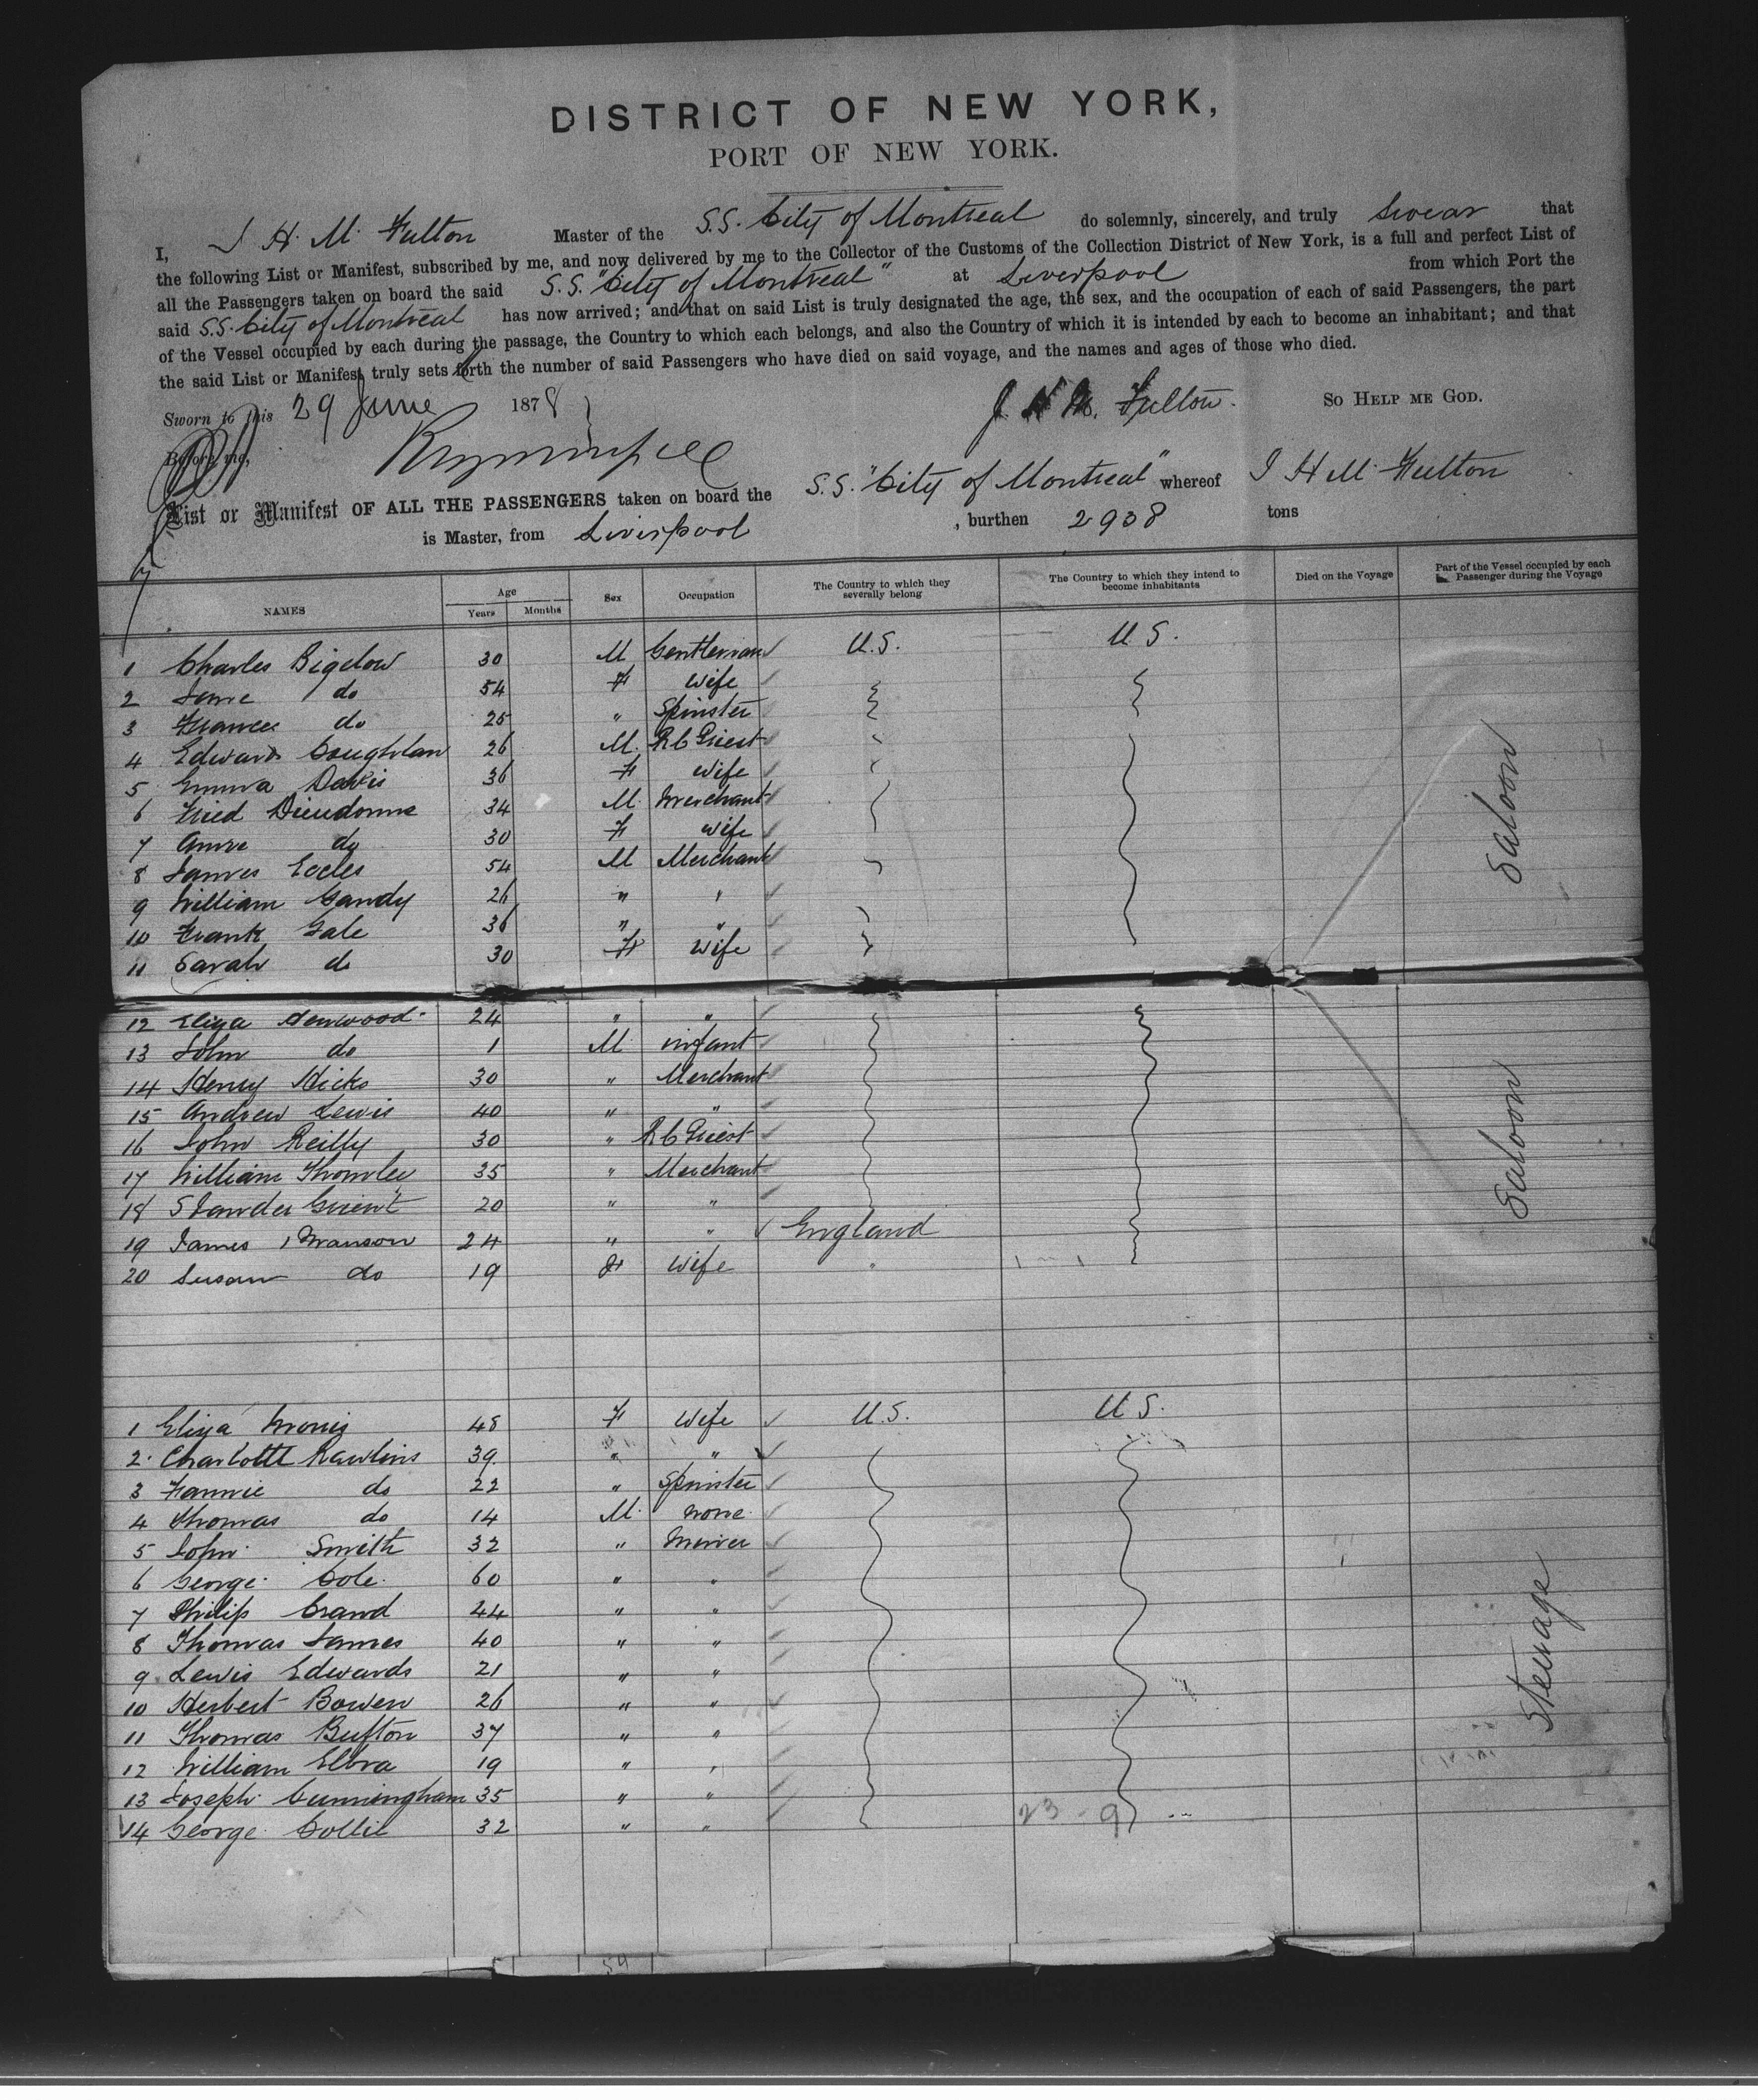 DISTRICT OF NEW YORK,
PORT OF NEW YORK.
I, J. H. M. Fulton Master of the S.S. City of Montreal do solemnly, sincerely, and truly Swear that
the following List or Manifest, subscribed by me, and now delivered by me to the Collector of the Customs of the Collection District of New York, is a full and perfect List of
all the Passengers taken on board the said S.S. "City of Montreal" at Liverpool from which Port the
said S.S. City of Montreal has now arrived; and that on said List is truly designated the age, the sex, and the occupation of each of said Passengers, the part
of the Vessel occupied by each during the passage, the Country to which each belongs, and also the Country of which it is intended by each to become an inhabitant; and that
the said List or Manifest truly sets forth the number of said Passengers who have died on said voyage, and the names and ages of those who died.
Sworn to this 29 June 1878 J H M. Fulton. SO HELP ME GOD.
Before me,
List or Manifest OF ALL THE PASSENGERS taken on board the S.S. "City of Montreal" whereof J H M. Fulton
is Master, from Liverpool , burthen 2938 tons
NAMES Age Years Months Sex Occupation The Country to which they severally belong The Country to which they intend to become inhabitants Died on the Voyage Part of the Vessel occupied by each Passenger during the Voyage
1 Charles Bigelow 30 M Gentleman U.S. U.S.
2 Jane do 54 F wife
3 Frances do 25 " Spinster
4 Edward Coughlan 26 M. R C Priest
5 Emma Davis 36 F wife
6 Fried Dieudonne 34 M. Merchant
7 Anne do 30 F wife
8 James Eccles 54 M Merchant
9 William Gandy 26 " "
10 Frank Gale 36 " "
11 Sarah do 30 F Wife
Saloon
12 Eliza Henwood 24 " "
13 John do 1 M infant
14 Henry Hicks 30 " Merchant
15 Andrew Lewis 40 " "
16 John Reilly 30 " R C Priest
17 William 35 " Merchant
18 20 " "
19 James Manson 24 " " England
20 Susan do 19 F Wife "
Saloon
1 Eliza Morris 48 F Wife U.S. U.S.
2 Charlotte Rawlins 39 " "
3 Fannie do 22 " Spinster
4 Thomas do 14 M. none
5 John Smith 32 " Miner
6 George Cole 60 " "
7 Philip Crand 44 " "
8 Thomas James 40 " "
9 Lewis Edwards 21 " "
10 Herbert Bowen 26 " "
11 Thomas Bufton 37 " "
12 William Elbra 19 " "
13 Joseph Cunningham 35 " "
14 George Collie 32 " " 23 - 9
Steerage
54